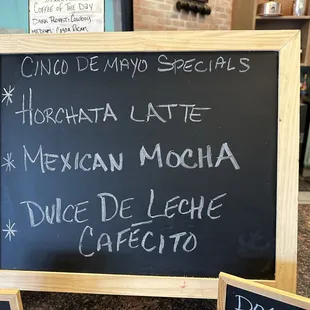 COFFEE OF THE DAY
DARK ROAST: COWBOYS
CINCO DE MAYO SPECIALS
* HORCHATA LATTE
* MEXICAN MOCHA
* DULCE DE LECHE
CAFÉCITO